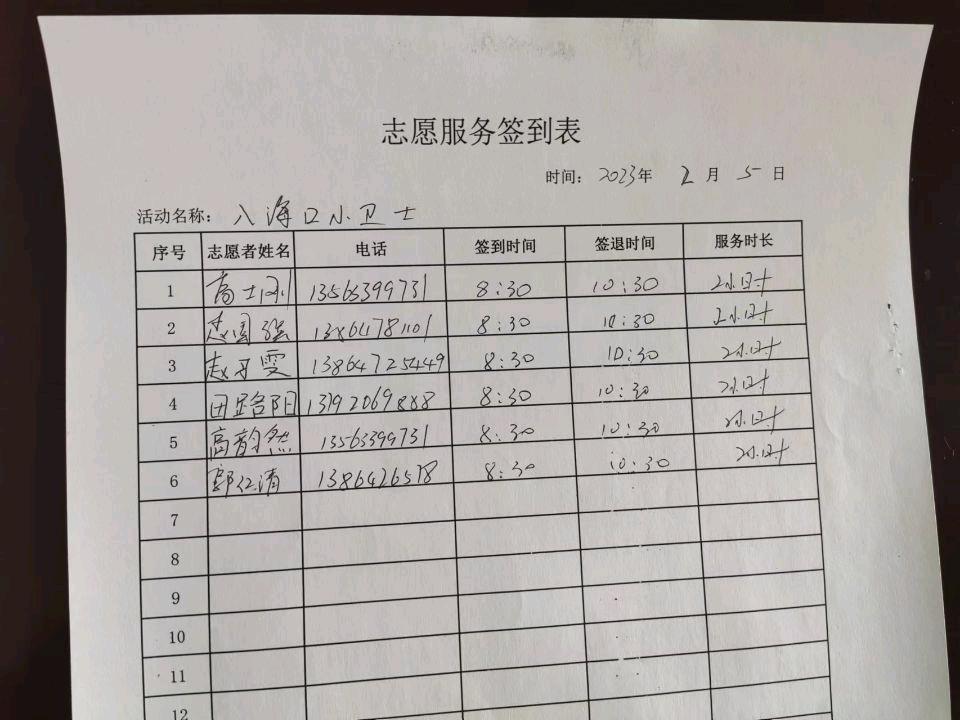 志愿服务签到表
时间: 2023年 2月 5日
活动名称: 入海口小卫士
序号 志愿者姓名 电话 签到时间 签退时间 服务时长
1 高士刚 13563399731 8:30 10:30 2小时
2 国强 8:30 10:30 2小时
3 赵雯 13864725449 8:30 10:30 2小时
4 田路阳 13792069888 8:30 10:30 2小时
5 高韵然 13563399731 8:30 10:30 2小时
6 郭仁清 1386426578 8:30 10:30 2小时
7
8
9
10
11
12